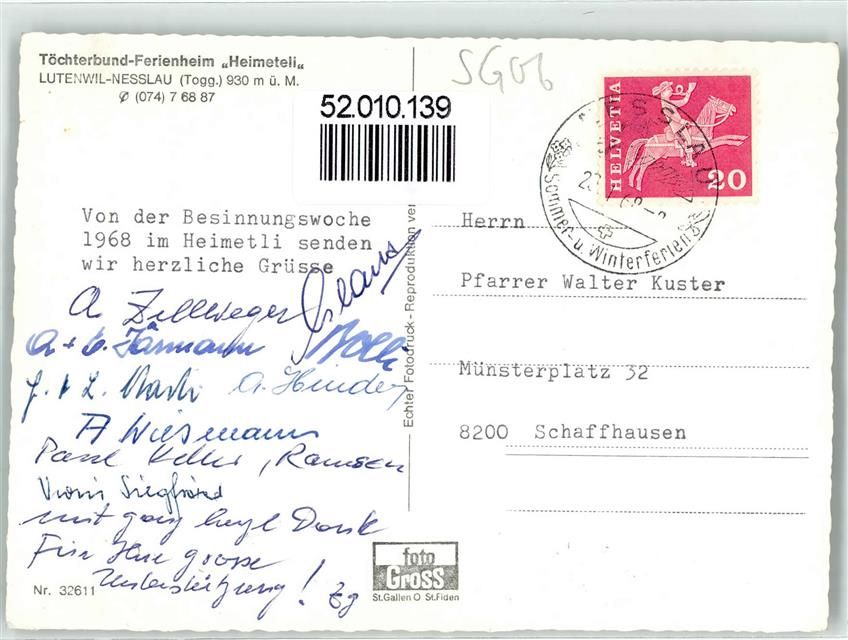 Töchterbund-Ferienheim „Heimeteli„
LUTENWIL-NESSLAU (Togg.) 930 m ü. M.
✆ (074) 7 68 87
SG06
52.010.139
HELVETIA
20
NESSLAU
Sommer- u. Winterferien
Von der Besinnungswoche
1968 im Heimetli senden
wir herzliche Grüsse
A. Zellweger
A. + E. Järmann
A. Hinder
A Wiesmann
Paul Keller, Ramsen
Vroni Siegfried
mit ganz herzl Dank
Für Ihre grosse
Unterstützung! Zg
Echter Fotodruck - Reproduktion ver
Herrn
Pfarrer Walter Kuster
Münsterplatz 32
8200 Schaffhausen
Nr. 32611
foto
GROSS
St.Gallen O St.Fiden